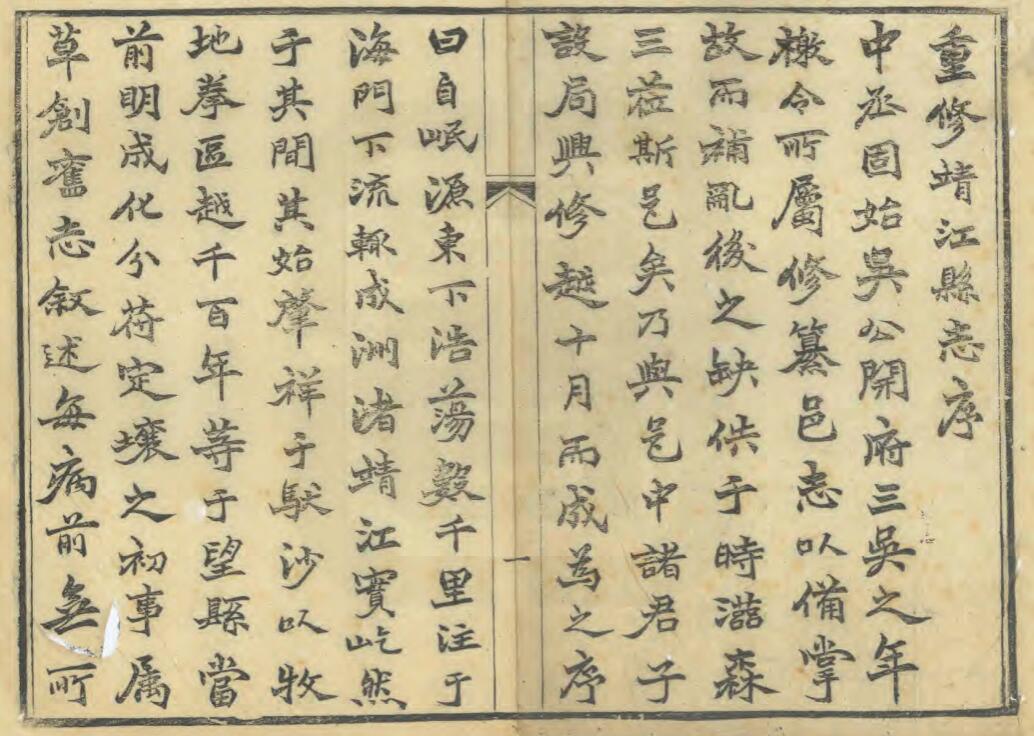 重修靖江縣志序
中丞固始吳公開府三吳之年
檄令所屬修纂邑志以備掌
故而補亂後之缺佚于時灃森
三蒞斯邑矣乃與邑中諸君子
設局興修越十月而成為之序
一
曰自岷源東下浩蕩數千里注于
海門下流輒成洲渚靖江實屹然
于其間其始肇祥于馱沙以牧
地拳區越千百年等于望縣當
前明成化分符定壤之初事属
草創舊志敘述每病前無所